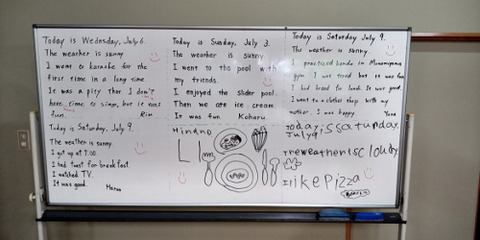 Today is Wednesday, July 6.
The weather is sunny
I went to karaoke for the
first time in a long time.
It was a pity that I don't
have time to sing, but it was
fun. Rin
Today is Sunday, July 3.
The weather is sunny
I went to the pool with
my friends.
I enjoyed the slider pool.
Then we ate ice cream.
It was fun. Koharu
Today is Saturday July 9.
The weather is sunny
I practiced bando in
gym. I was tired but it was fun
I had bread to lunch. It was good.
I went to a clothes shop with my
mother. I was happy. Yuna
Today is Saturday, July 9.
The weather is sunny
I got up at 7:00.
I had toast for breakfast.
I watched TV.
It was good. Haruo
Hinano
Today is saturday,
July 9.
The weather is cloudy.
I like Pizza